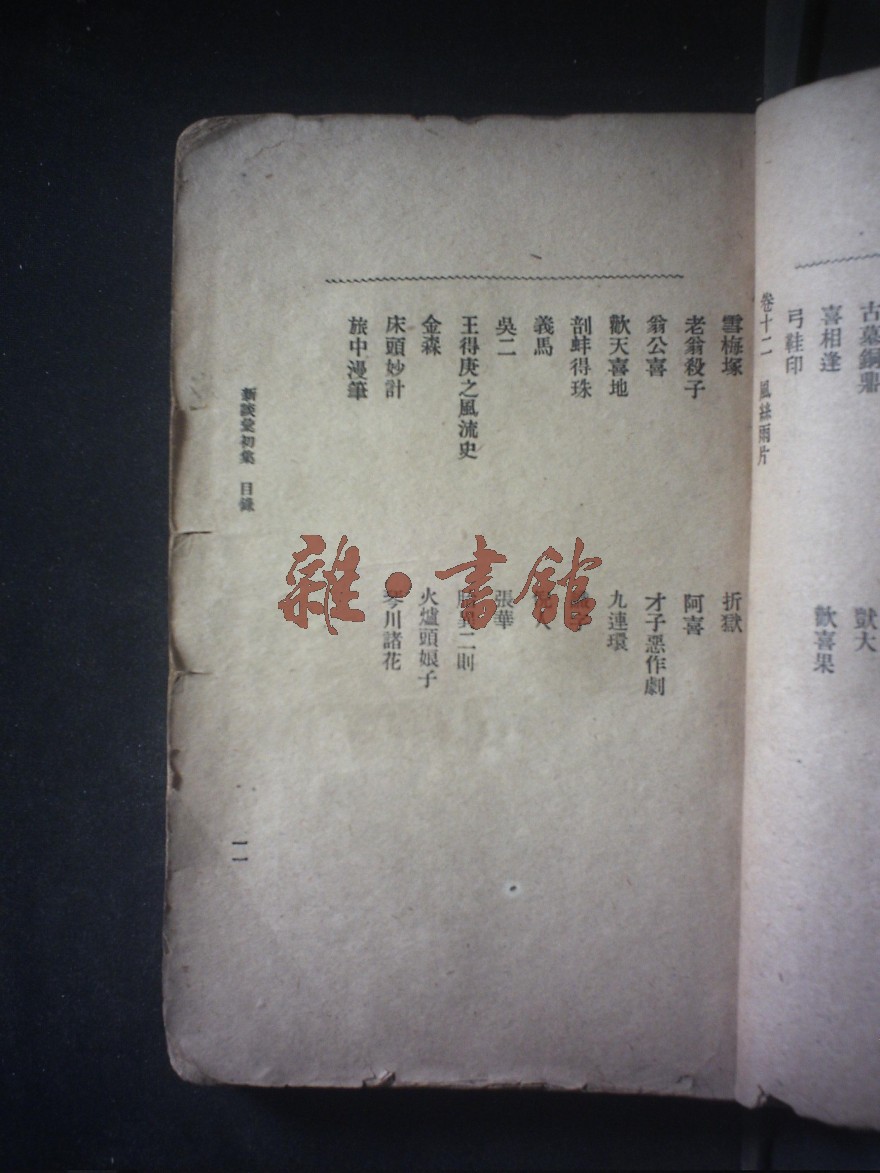 古墓銅鼎
獃大
喜相逢
歡喜果
弓鞋印
卷十二 風絲雨片
雪梅塚
折獄
老翁殺子
阿喜
翁公喜
才子惡作劇
歡天喜地
九連環
剖蚌得珠
義馬
吳二
張華
王得庚之風流史
二則
金森
火爐頭娘子
床頭妙計
琴川諸花
旅中漫筆
新談彙初集 目錄
一一
雜·書館